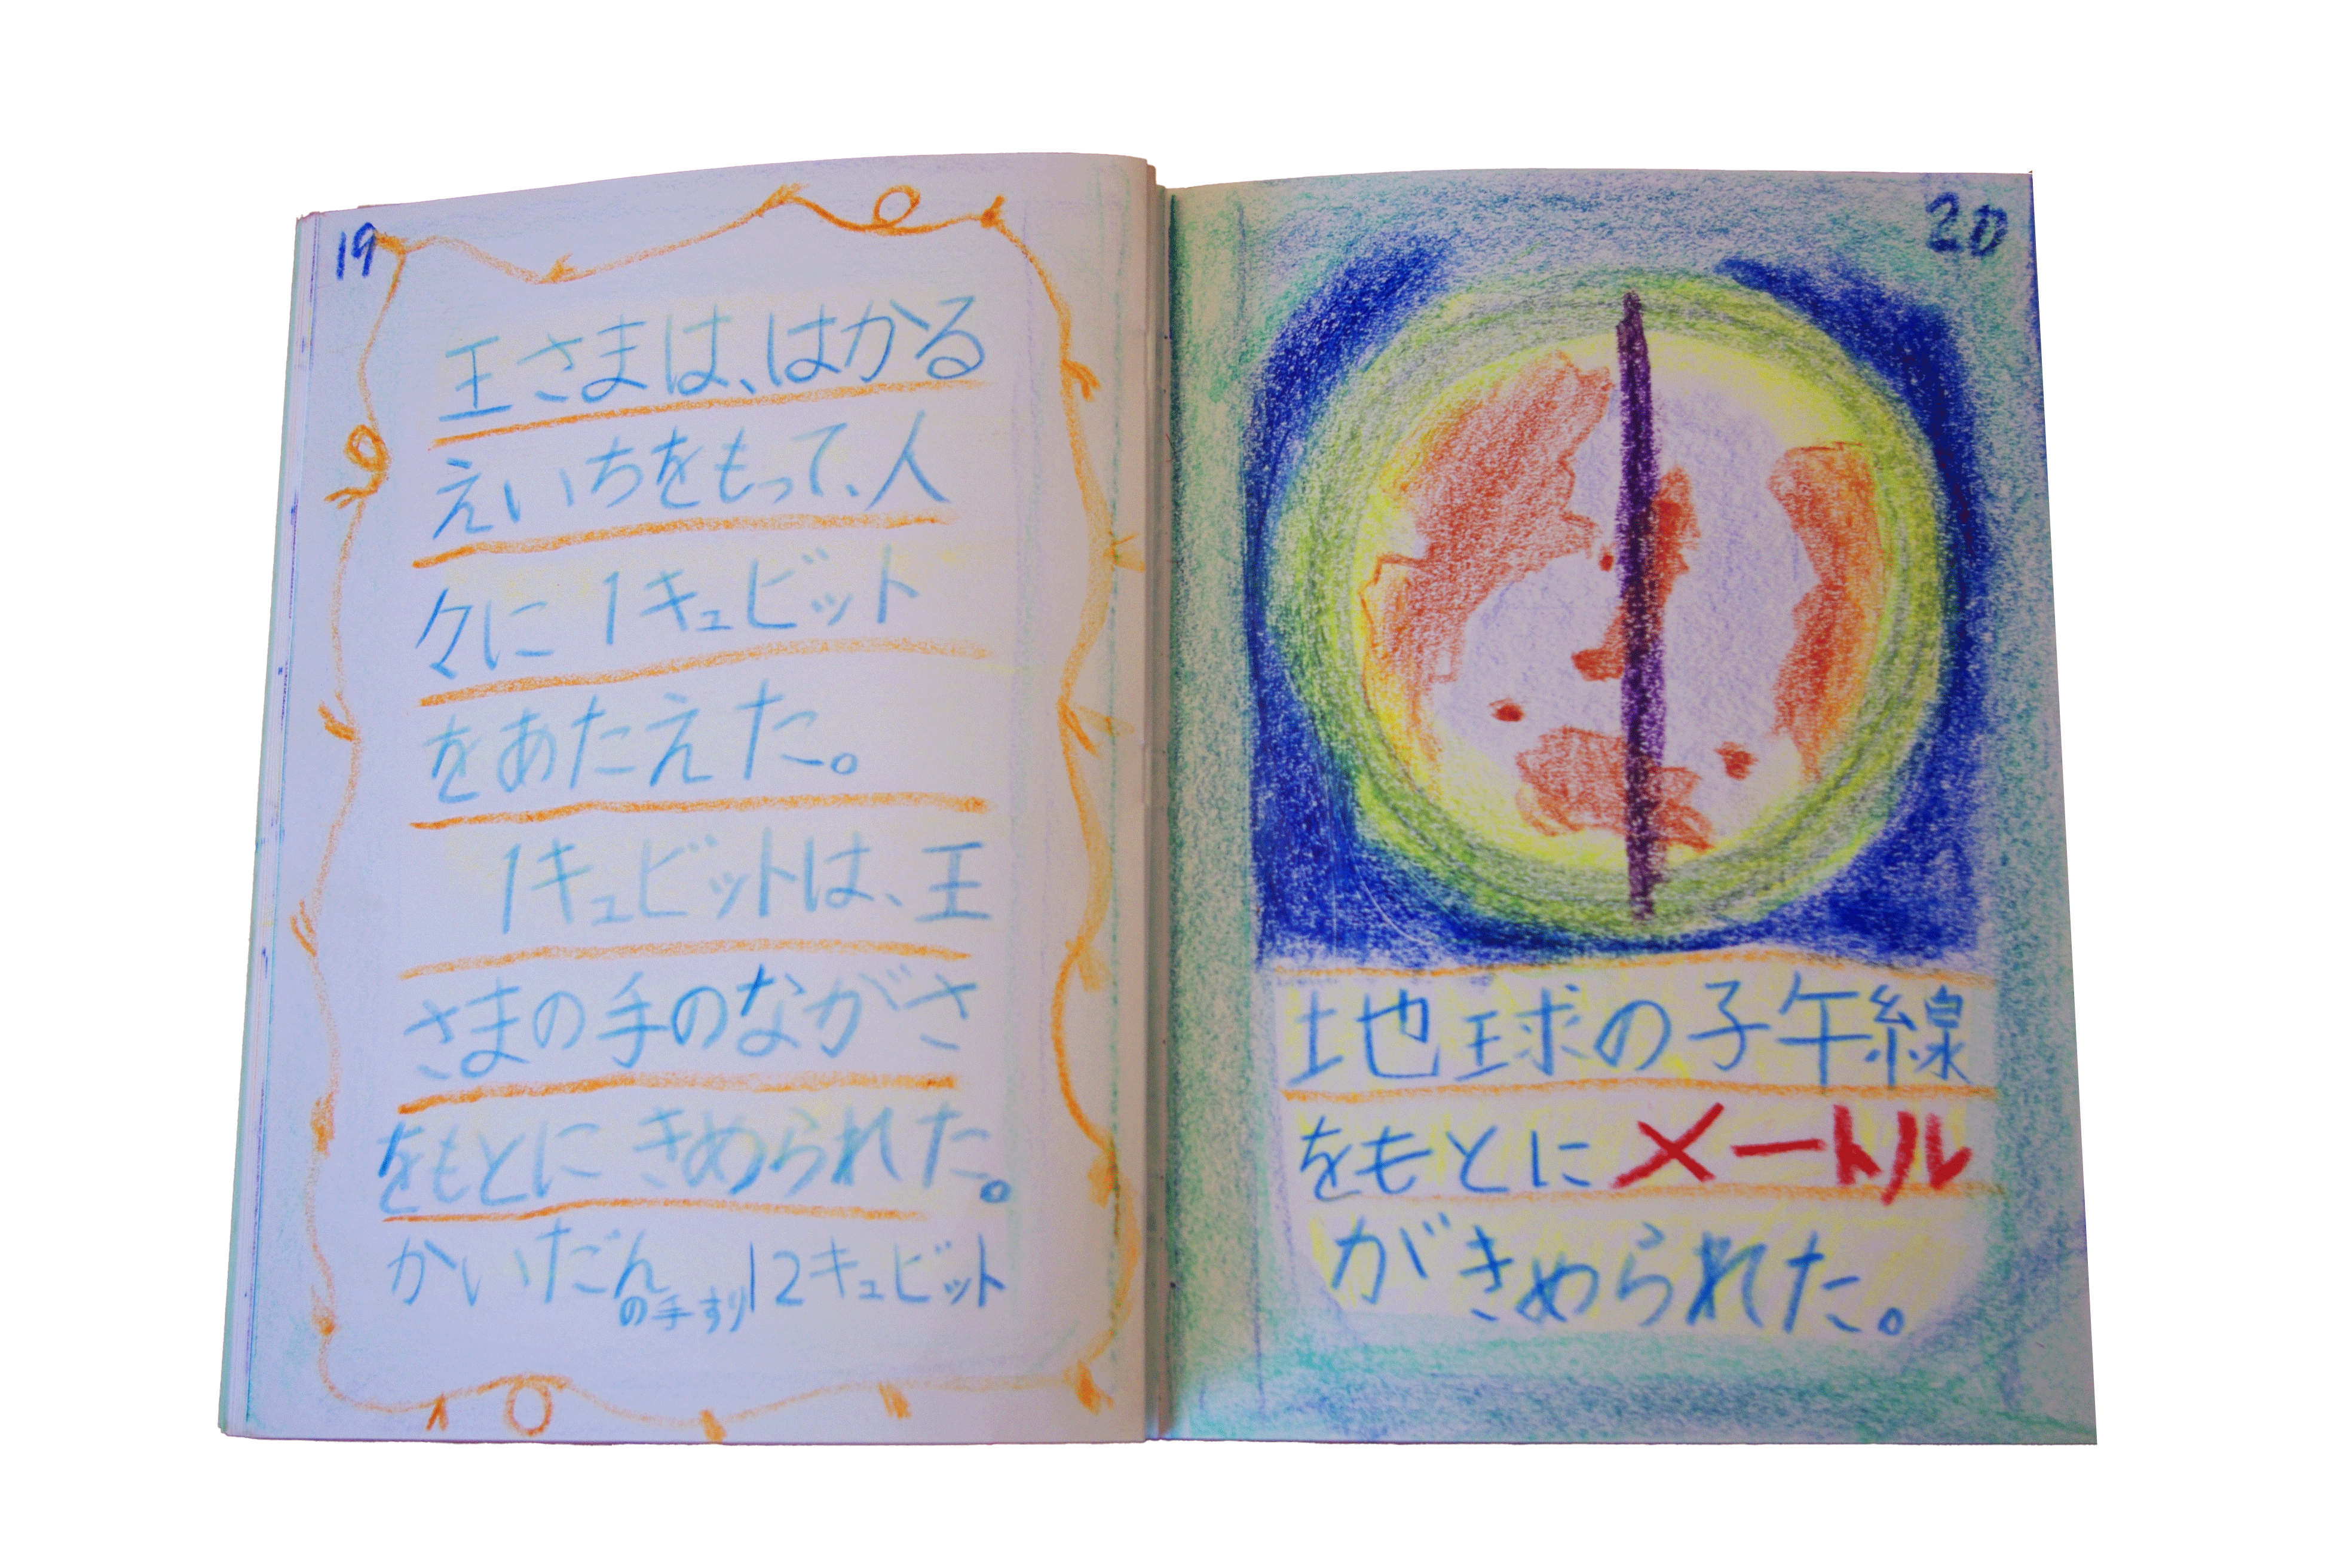 19
王さまは、はかる
えいちをもって、人
々に1キュビット
をあたえた。
1キュビットは、王
さまの手のながさ
をもとにきめられた。
かいだんの手すり12キュビット
20
地球の子午線
をもとにメートル
がきめられた。